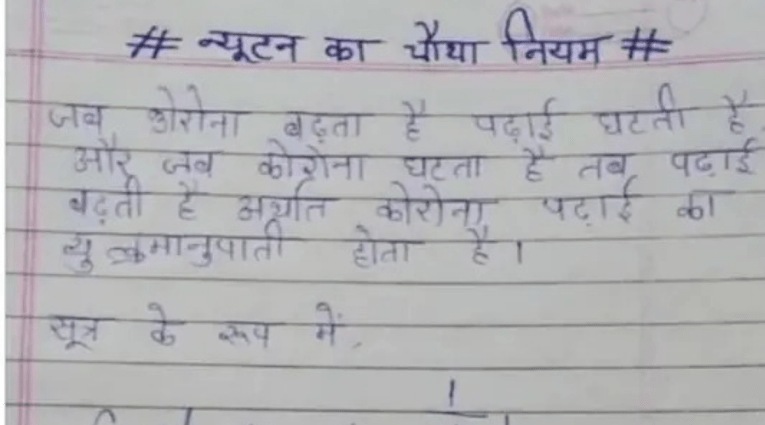 # न्यूटन का चौथा नियम #
जब कोरोना बढ़ता है पढ़ाई घटती है
और जब कोरोना घटता है तब पढाई
बढ़ती है अर्थात कोरोना पढ़ाई का
व्युत्क्रमानुपाती होता है।
सूत्र के रूप में,
1